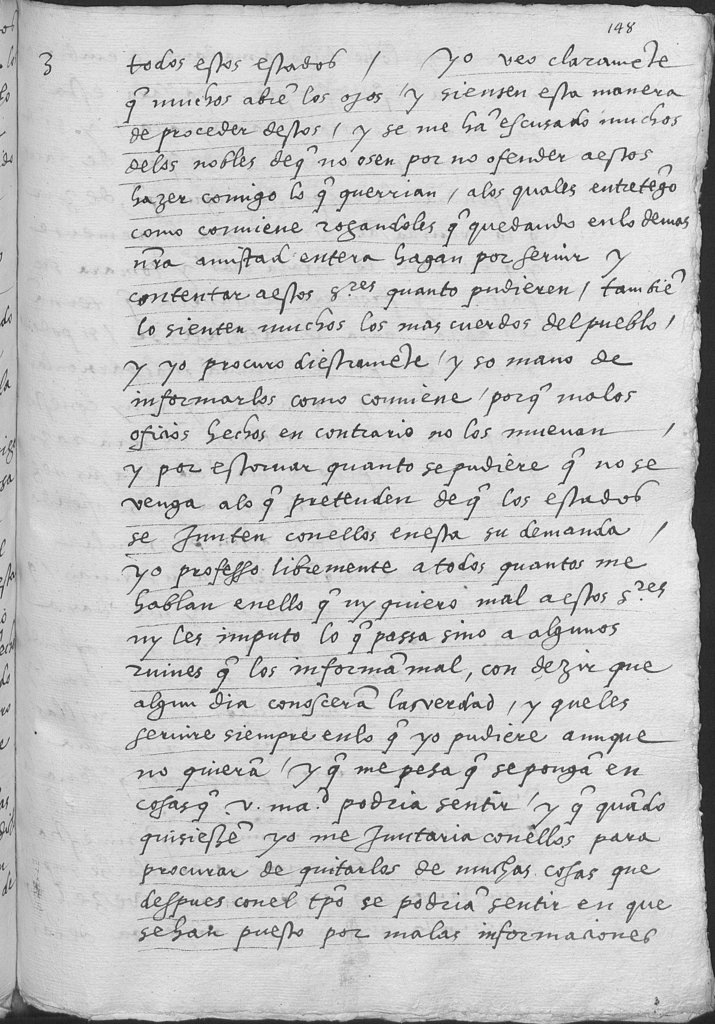 148
3 todos estos estados / yo veo claramẽte
q̃ muchos abrẽ los ojos / y sienten esta manera
de proceder destos / y se me hã escusado muchos
delos nobles deq̃ no osen por no ofender aestos
hazer comigo lo q̃ querrian / alos quales entretẽgo
como conviene rogandoles q̃ quedando enlo demas
nr̃a amistad entera hagan por servir y
contentar aestos s.res quanto pudieren / tambiẽ
lo sienten muchos los mas cuerdos del pueblo /
y yo procuro diestramẽte / y so mano de
informarlos como conviene / porq̃ malos
oficios hechos en contrario no los muevan /
y por estorvar quanto se pudiere q̃ no se
venga alo q̃ pretenden deq̃ los estados
se Junten conellos enesta su demanda /
yo professo libremente a todos quantos me
hablan enello q̃ ny quiero mal a estos s.res
ny les imputo lo q̃ passa sino a algunos
ruines q̃ los informã mal, con dezir que
algun dia conoscerã la verdad, y que les
servire siempre enlo q̃ yo pudiere aunque
no quierã / y q̃ me pesa q̃ se pongã en
cosas q̃ v. ma.d podria sentir / y q̃ quãdo
quisiessẽ yo me Juntaria conellos para
procurar de quitarlos de muchas cosas que
despues conel tpõ se podriã sentir en que
se han puesto por malas informaciones